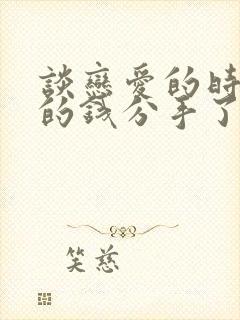 談戀愛的時
的錢分手了
笑慈